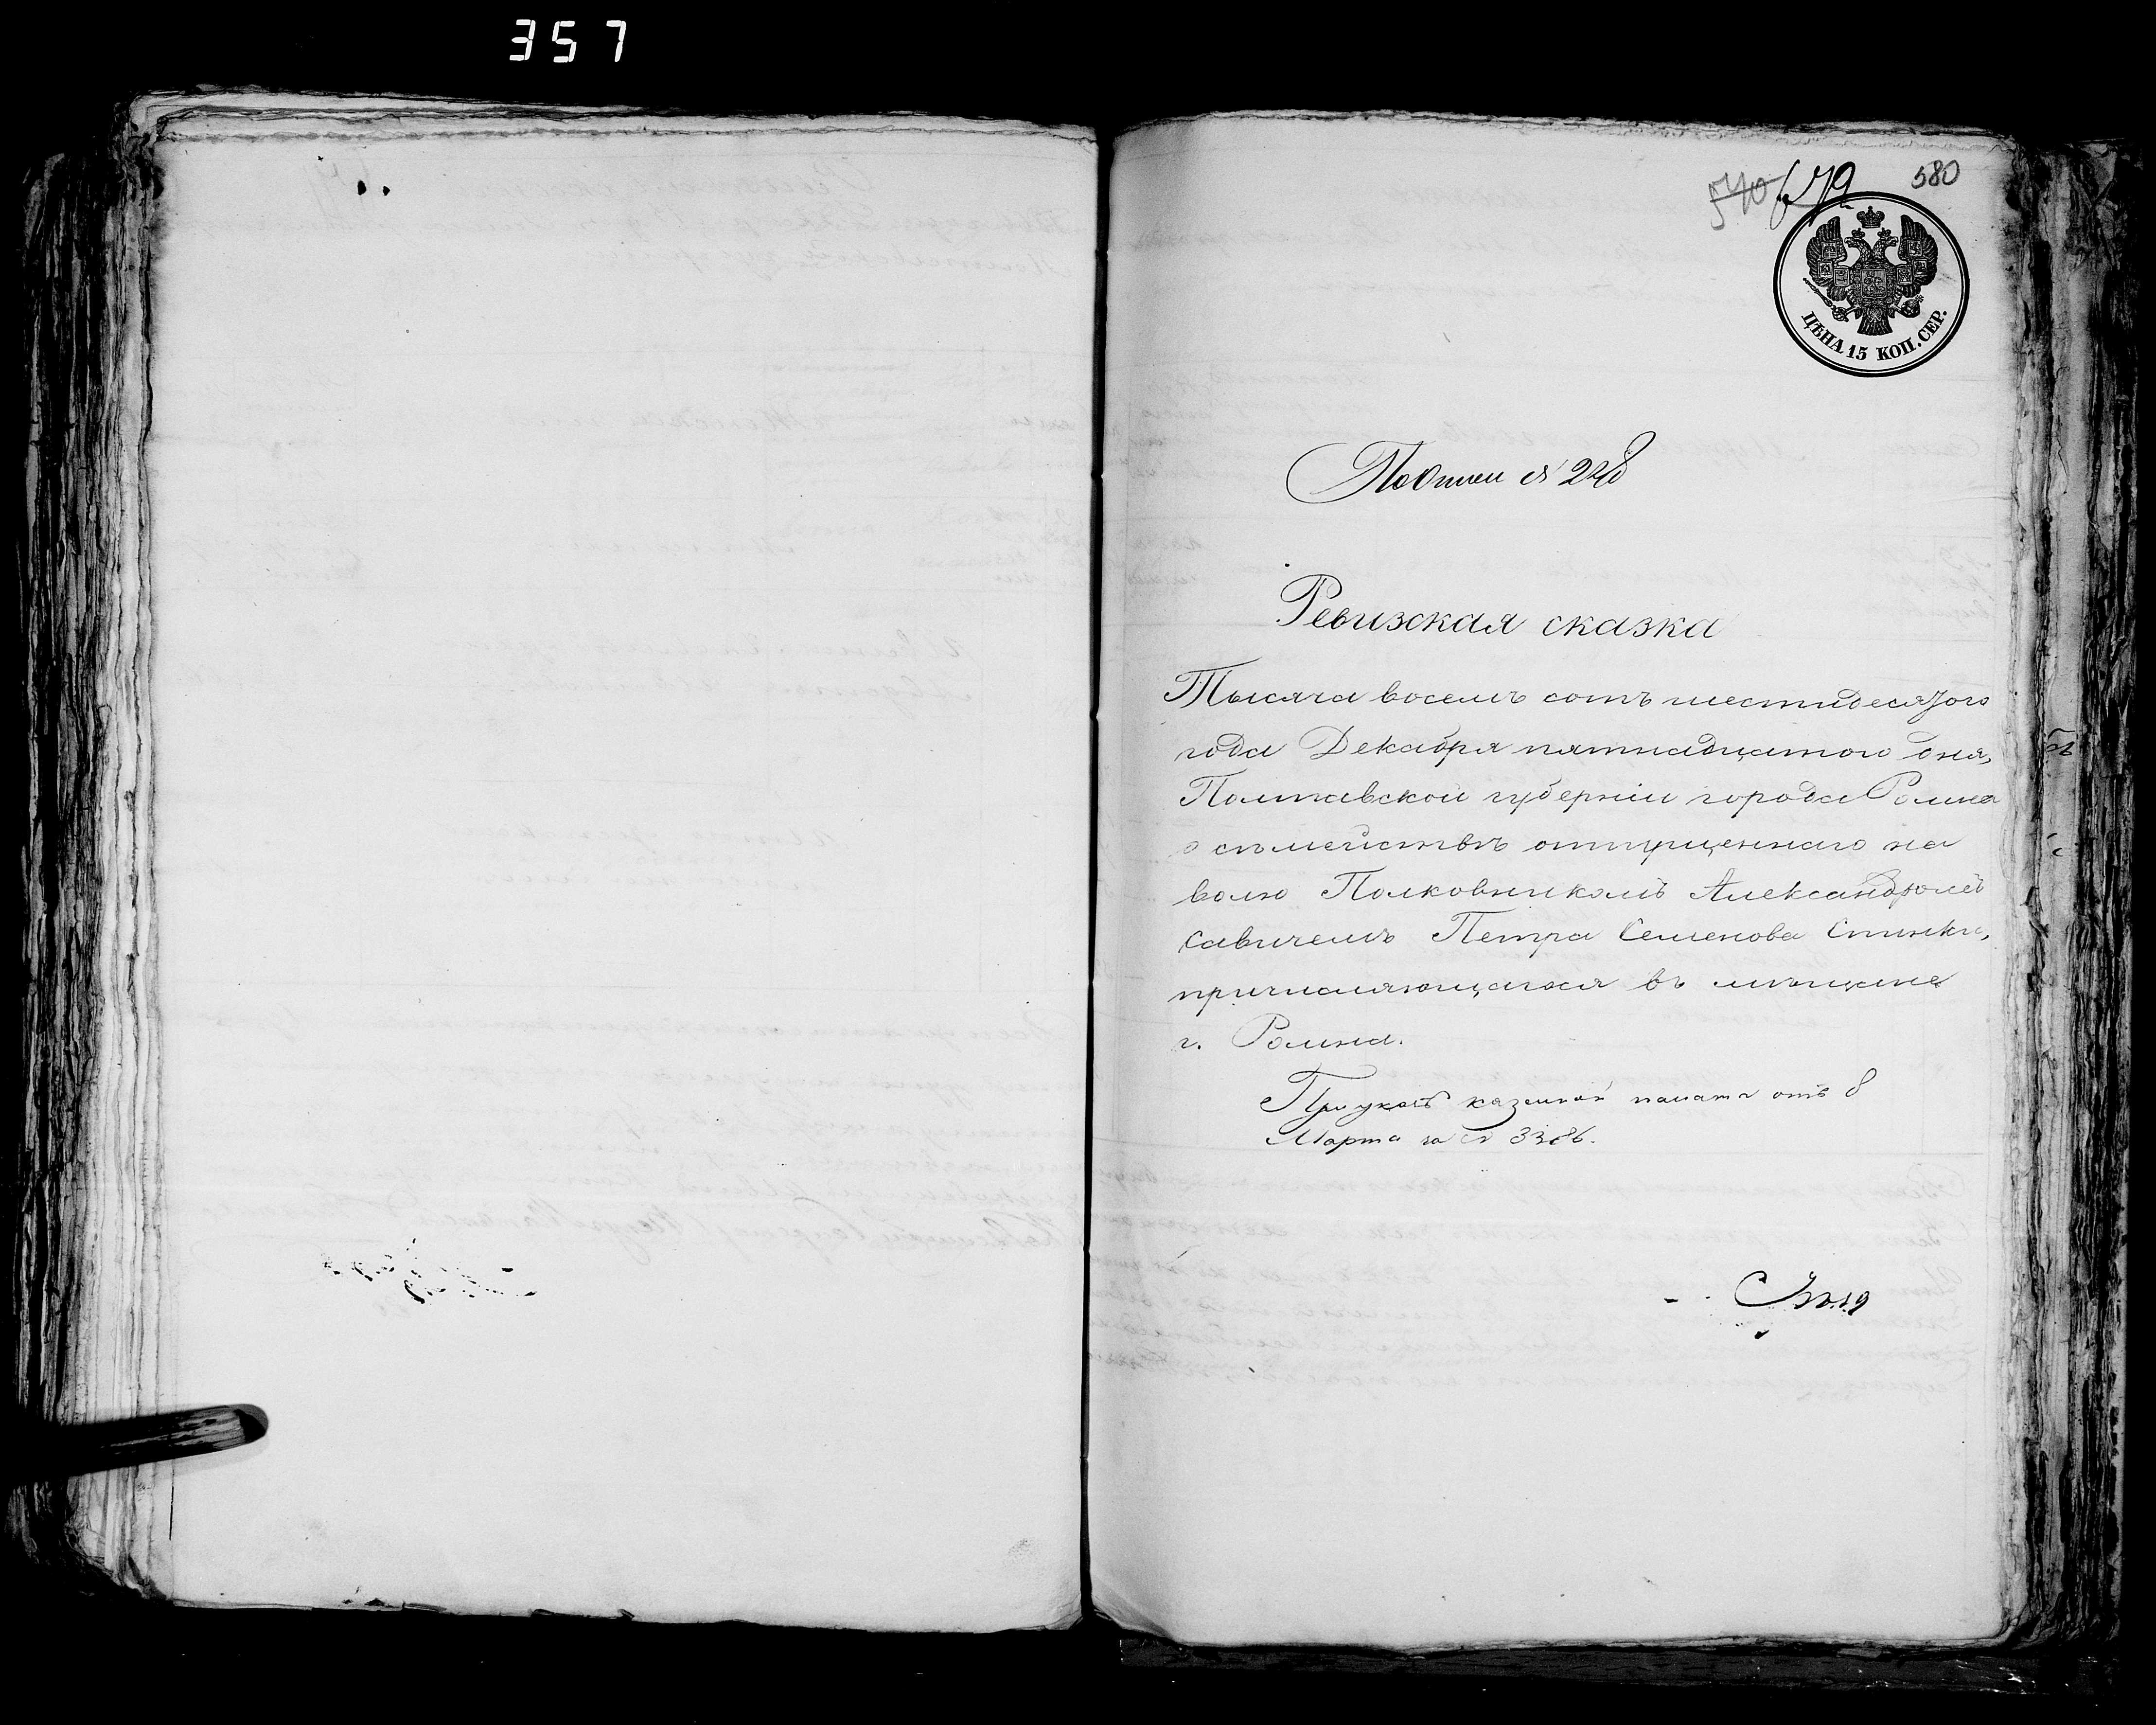 357
540 679 580
ЦѢНА 15 КОП. СЕР.
По Описи № 228
Ревизская сказка
Тысяча восемь сотъ шестидесятого
года Декабря пятнадцатого дня,
Полтавской губерніи города Ромна
о сѣмействѣ отпущеннаго на
волю Полковникомъ Александромъ
Савичемъ Петра Семенова Спинки,
причисляющагося въ мѣщане
г. Ромна.
При указѣ казенной палаты отъ 8
Марта за № 3386.